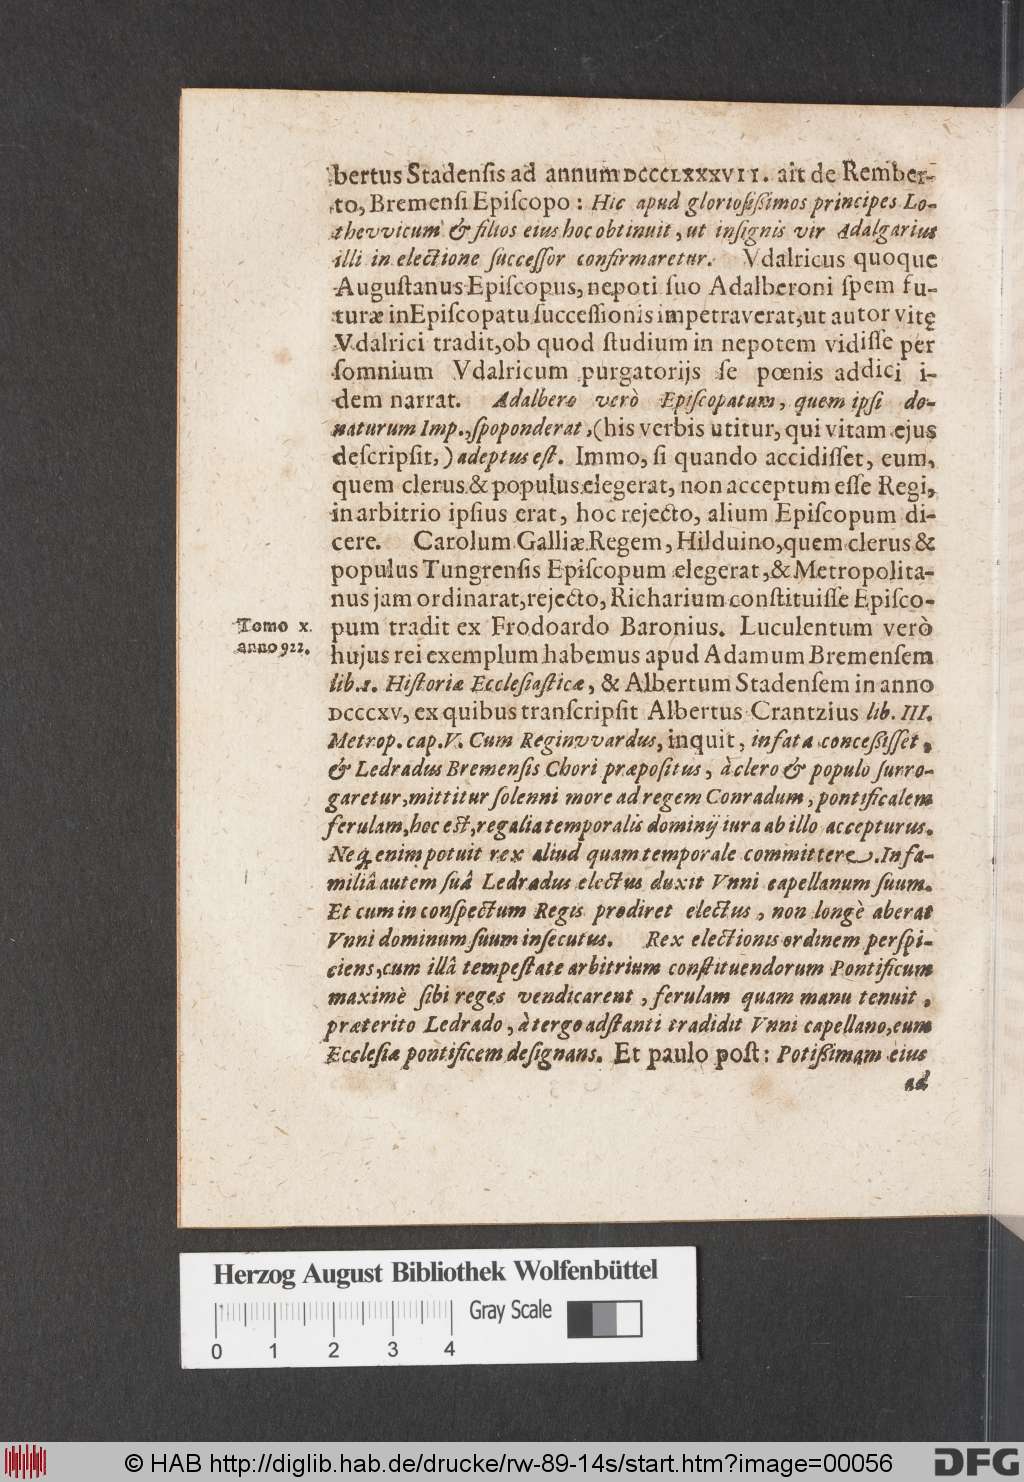 bertus Stadenſis ad annum DCCCLXXXVII. ait de Rember-
to, Bremenſi Epiſcopo: Hic apud glorioſiſſimos principes Lo-
thevvicum & filios eius hoc obtinuit, ut inſignis vir Adalgarius
illi in electione ſucceſſor confirmaretur. Vdalricus quoque
Auguſtanus Epiſcopus, nepoti ſuo Adalberoni ſpem fu-
turæ in Epiſcopatu ſucceſſionis impetraverat, ut autor vitę
Vdalrici tradit, ob quod ſtudium in nepotem vidiſſe per
ſomnium Vdalricum purgatorijs ſe pœnis addici i-
dem narrat. Adalbero verò Epiſcopatum, quem ipſi do-
naturum Imp., ſpoponderat, (his verbis utitur, qui vitam ejus
deſcripſit,) adeptus eſt. Immo, ſi quando accidiſſet, eum,
quem clerus & populus elegerat, non acceptum eſſe Regi,
in arbitrio ipſius erat, hoc rejecto, alium Epiſcopum di-
cere. Carolum Galliæ Regem, Hilduino, quem clerus &
populus Tungrenſis Epiſcopum elegerat, & Metropolita-
nus jam ordinarat, rejecto, Richarium conſtituiſſe Epiſco-
pum tradit ex Frodoardo Baronius. Luculentum verò
Tomo x.
anno 922.
hujus rei exemplum habemus apud Adamum Bremenſem
lib. 1. Hiſtoriæ Eccleſiaſticæ, & Albertum Stadenſem in anno
DCCCXV, ex quibus tranſcripſit Albertus Crantzius lib. III.
Metrop. cap. V. Cum Reginvvardus, inquit, in fata conceſſiſſet,
& Ledradus Bremenſis Chori præpoſitus, à clero & populo ſurro-
garetur, mittitur ſolenni more ad regem Conradum, pontificalem
ferulam, hoc eſt, regalia temporalis dominij iura ab illo accepturus.
Neq; enim potuit rex aliud quam temporale committere. In fa-
miliâ autem ſuâ Ledradus electus duxit Vnni capellanum ſuum.
Et cum in conſpectum Regis prodiret electus, non longè aberat
Vnni dominum ſuum inſecutus. Rex electionis ordinem perſpi-
ciens, cum illâ tempeſtate arbitrium conſtituendorum Pontificum
maximè ſibi reges vendicarent, ferulam quam manu tenuit,
præterito Ledrado, à tergo adſtanti tradidit Vnni capellano, eum
Eccleſiæ pontificem deſignans. Et paulo poſt: Potiſſimam eius
ad
Herzog August Bibliothek Wolfenbüttel
Gray Scale
0 1 2 3 4
© HAB http://diglib.hab.de/drucke/rw-89-14s/start.htm?image=00056
DFG